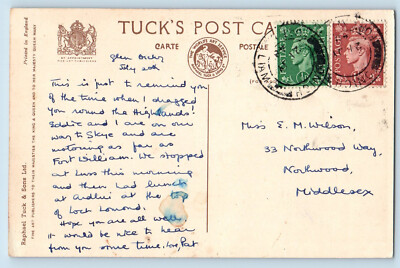 TUCK'S POST CARD
CARTE POSTALE
BY APPOINTMENT
Printed in England
Raphael Tuck & Sons Ltd.
FINE ART PUBLISHERS TO THEIR MAJESTIES THE KING & QUEEN AND TO HER MAJESTY QUEEN MARY
POSTAGE
POSTAGE
Glen Orchy
July 20th
This is just to remind you
of the time when I dragged
you round the Highlands!
Eddie and I are on our
way to Skye and are
motoring as far as
Fort William. We stopped
at Luss this morning
and then had lunch
at Ardlui at the top
of Loch Lomond.
Hope you are all well
it would be nice to hear
from you some time. Love, Pat
Miss E. M. Wilson,
33 Northwood Way,
Northwood,
Middlesex